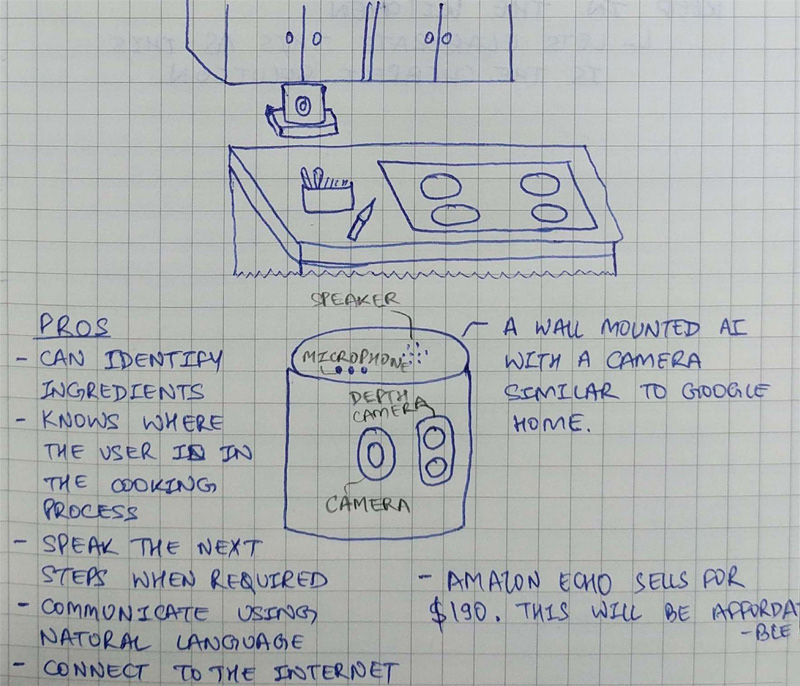 SPEAKER
MICROPHONE
DEPTH
CAMERA
CAMERA
PROS
- CAN IDENTIFY
INGREDIENTS
- KNOWS WHERE
THE USER IS IN
THE COOKING
PROCESS
- SPEAK THE NEXT
STEPS WHEN REQUIRED
- COMMUNICATE USING
NATURAL LANGUAGE
- CONNECT TO THE INTERNET
A WALL MOUNTED AI
WITH A CAMERA
SIMILAR TO GOOGLE
HOME.
- AMAZON ECHO SELLS FOR
$190. THIS WILL BE AFFORDA
-BLE